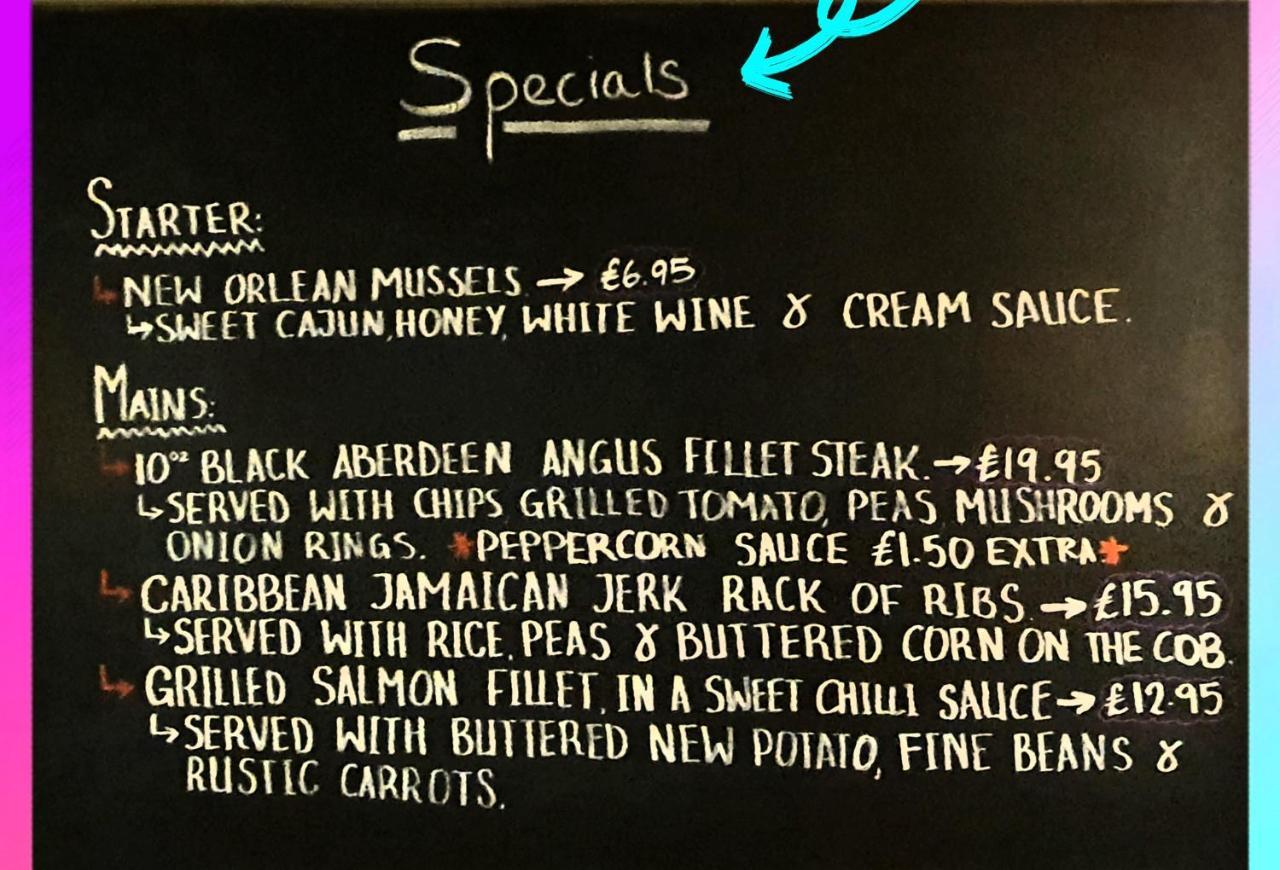 Specials
STARTER:
↳ NEW ORLEAN MUSSELS → £6.95
↳ SWEET CAJUN, HONEY, WHITE WINE & CREAM SAUCE.
MAINS:
↳ 10oz BLACK ABERDEEN ANGUS FILLET STEAK. → £19.95
↳ SERVED WITH CHIPS GRILLED TOMATO, PEAS, MUSHROOMS &
ONION RINGS. *PEPPERCORN SAUCE £1.50 EXTRA*
↳ CARIBBEAN JAMAICAN JERK RACK OF RIBS. → £15.95
↳ SERVED WITH RICE, PEAS & BUTTERED CORN ON THE COB.
↳ GRILLED SALMON FILLET, IN A SWEET CHILLI SAUCE → £12.95
↳ SERVED WITH BUTTERED NEW POTATO, FINE BEANS &
RUSTIC CARROTS.